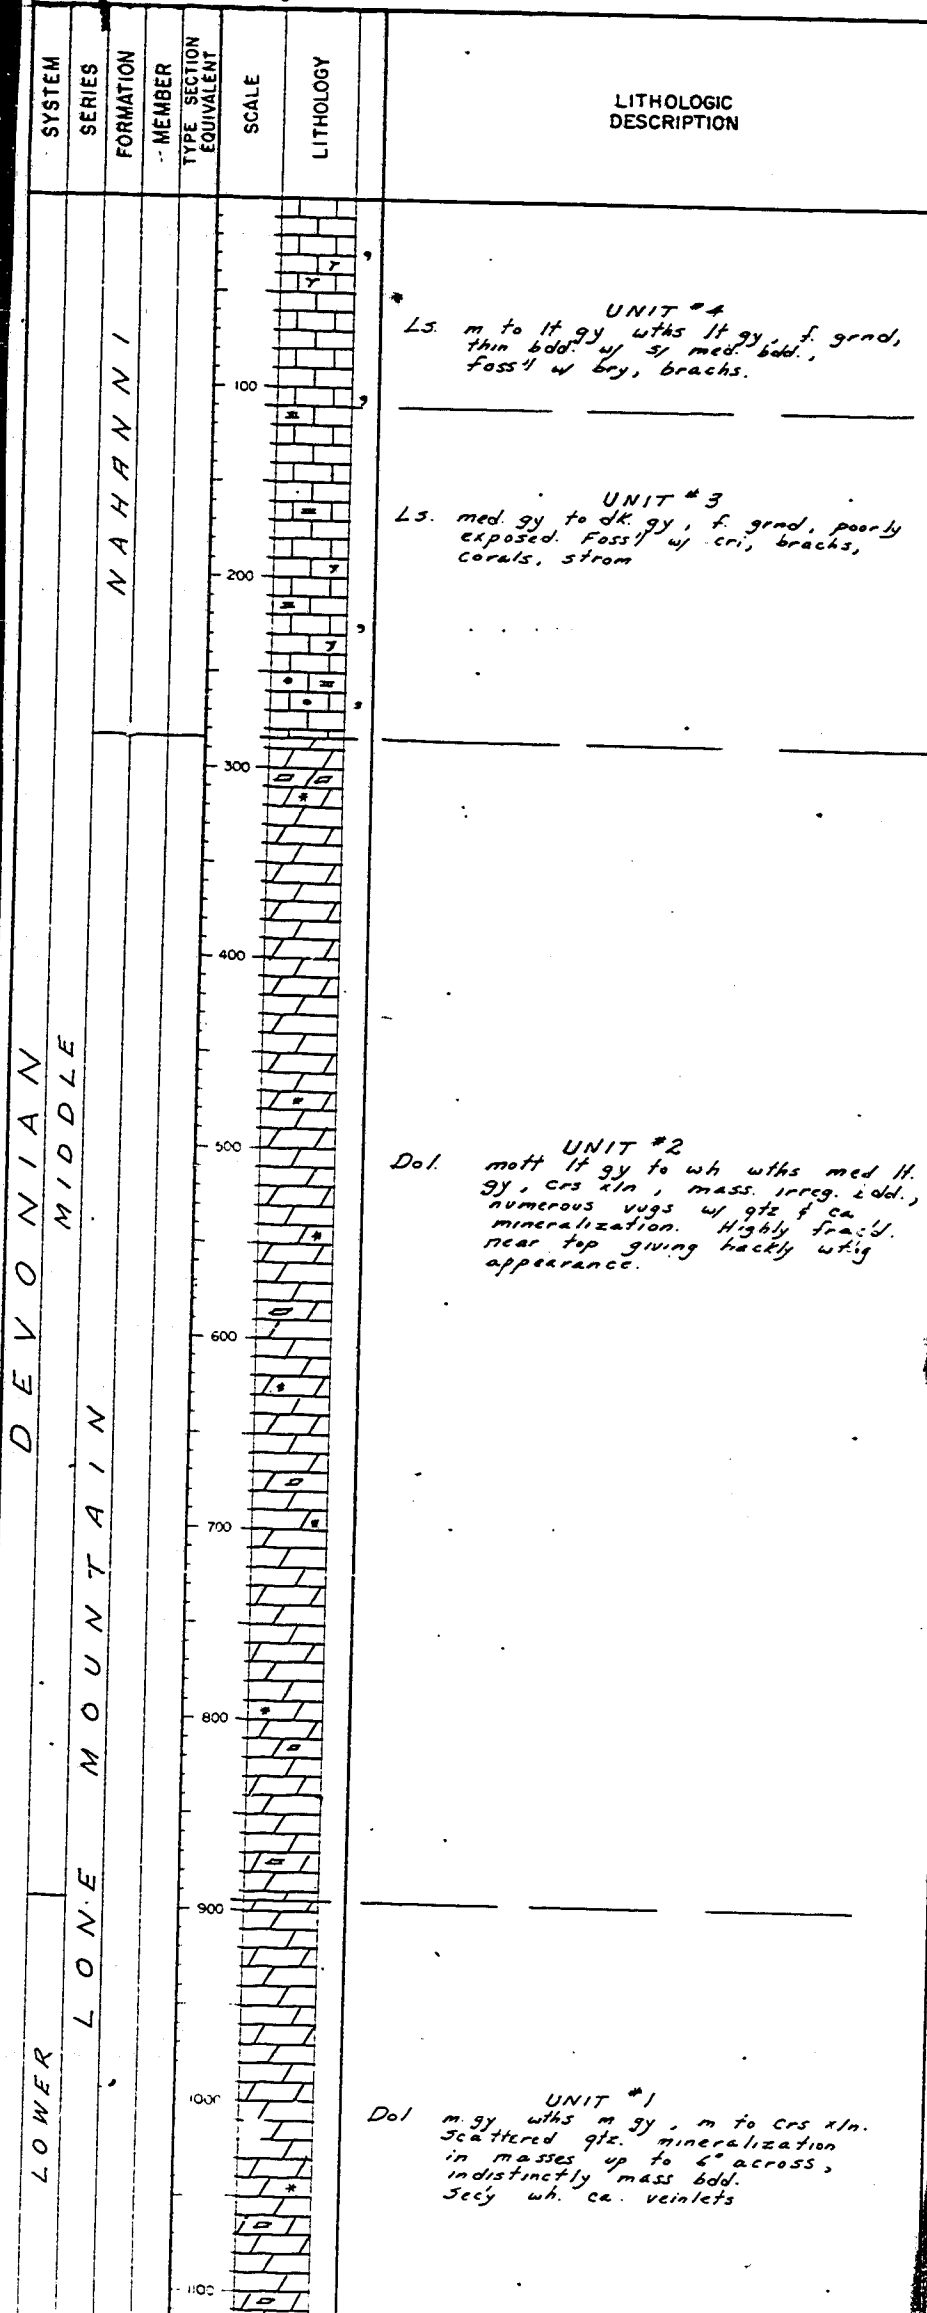 SYSTEM
SERIES
FORMATION
MEMBER
TYPE SECTION
EQUIVALENT
SCALE
LITHOLOGY
LITHOLOGIC
DESCRIPTION
DEVONIAN
MIDDLE
LOWER
NAHANNI
LONE MOUNTAIN
100
200
300
400
500
600
700
800
900
1000
1100
UNIT #4
Ls. m to lt gy wths lt gy, f. grnd,
thin bdd. w/ s/ med. bdd.,
foss'l w bry, brachs.
UNIT #3
Ls. med. gy to dk. gy, f. grnd, poorly
exposed. Foss'l w/ cri, brachs,
corals, strom
UNIT #2
Dol. mott lt gy to wh wths med lt.
gy, crs xln, mass. irreg. bdd.,
numerous vugs w/ qtz & ca
mineralization. Highly frac'd.
near top giving hackly wt'ig
appearance.
UNIT #1
Dol m. gy wths m gy, m to crs xln.
Scattered qtz. mineralization
in masses up to 6" across,
indistinctly mass bdd.
Sec'y wh. ca. veinlets